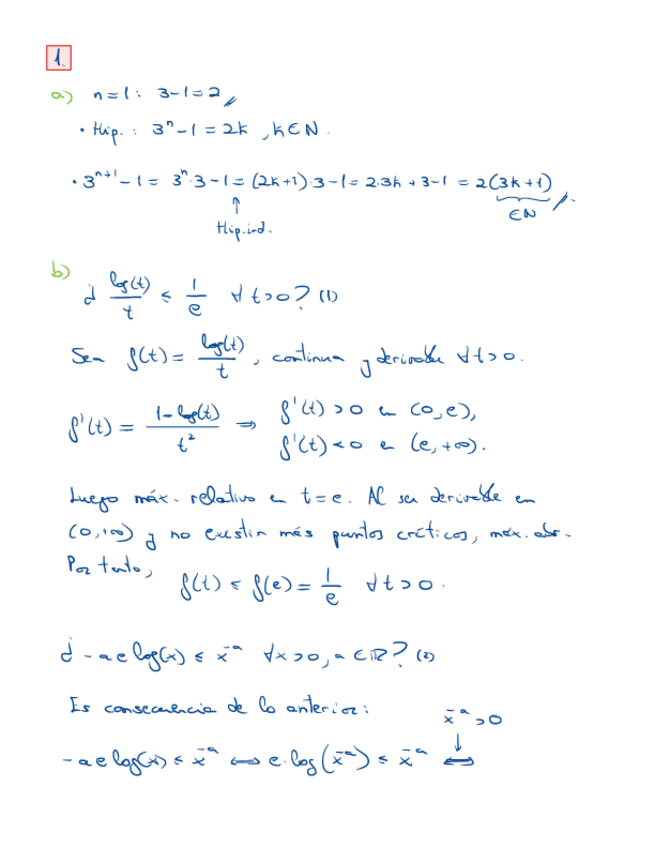 1.
a) n=1: 3-1=2 //
· Hip.: 3^n - 1 = 2k, k∈ℕ.
· 3^{n+1} - 1 = 3^n·3 - 1 = (2k+1)·3 - 1 = 2·3k + 3 - 1 = 2(3k+1) //.
↑ ∈ℕ
Hip. ind.
b) ¿ log(t)/t ≤ 1/e ∀t>0? (1)
Sea f(t) = log(t)/t, continua y derivable ∀t>0.
f'(t) = (1-log(t))/t² ⇒ f'(t)>0 en (0,e),
f'(t)<0 en (e,+∞).
Luego máx. relativo en t=e. Al ser derivable en
(0,+∞) y no existir más puntos críticos, máx. abs.
Por tanto, f(t) ≤ f(e) = 1/e ∀t>0.
¿ -a e log(x) ≤ x^{-a} ∀x>0, a∈ℝ? (2)
Es consecuencia de lo anterior: x^{-a}>0
↓
-a e log(x) ≤ x^{-a} ⟺ e·log(x^{-a}) ≤ x^{-a} ⟺